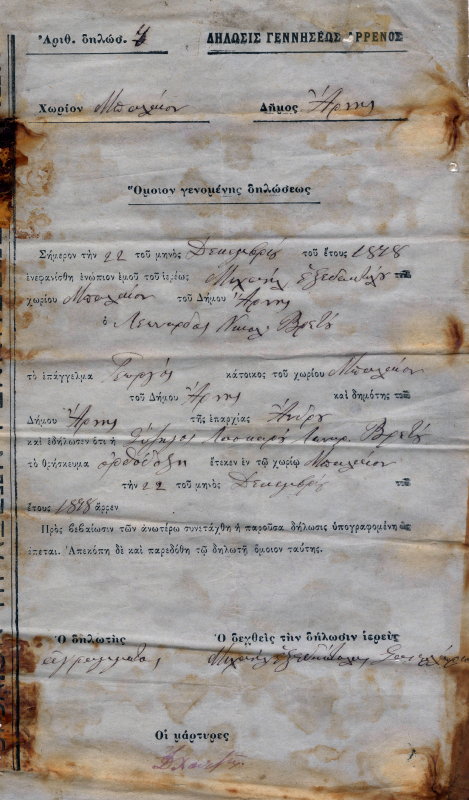 Ἀριθ. δηλώσ. 7
ΔΗΛΩΣΙΣ ΓΕΝΝΗΣΕΩΣ ΑΡΡΕΝΟΣ
Χωρίον Δῆμος Ἄρνης
Ὅμοιον γενομένης δηλώσεως
Σήμερον τὴν 22 τοῦ μηνὸς Δεκεμβρίου τοῦ ἔτους 1878
ἐνεφανίσθη ἐνώπιον ἐμοῦ τοῦ ἱερέως Μιχαὴλ τοῦ
χωρίου τοῦ Δήμου Ἄρνης
ὁ Λεονάρδος Νικολ. Βρετού
τὸ ἐπάγγελμα Γεωργός κάτοικος τοῦ χωρίου
τοῦ Δήμου Ἄρνης καὶ δημότης τοῦ
Δήμου Ἄρνης τῆς ἐπαρχίας Ἄνδρου
καὶ ἐδήλωσεν ὅτι ἡ σύζυγος Βρετού
τὸ θρήσκευμα ὀρθόδοξη ἔτεκεν ἐν τῷ χωρίῳ
τὴν 22 τοῦ μηνὸς Δεκεμβρίου τοῦ
ἔτους 1878 ἄρρεν
Πρὸς βεβαίωσιν τῶν ἀνωτέρω συνετάχθη ἡ παροῦσα δήλωσις ὑπογραφομένη ὡς
ἕπεται. Ἀπεκόπη δὲ καὶ παρεδόθη τῷ δηλωτῇ ὅμοιον ταύτης.
Ὁ δηλωτὴς Ὁ δεχθεὶς τὴν δήλωσιν ἱερεὺς
ἀγράμματος Μιχαήλ
Οἱ μάρτυρες